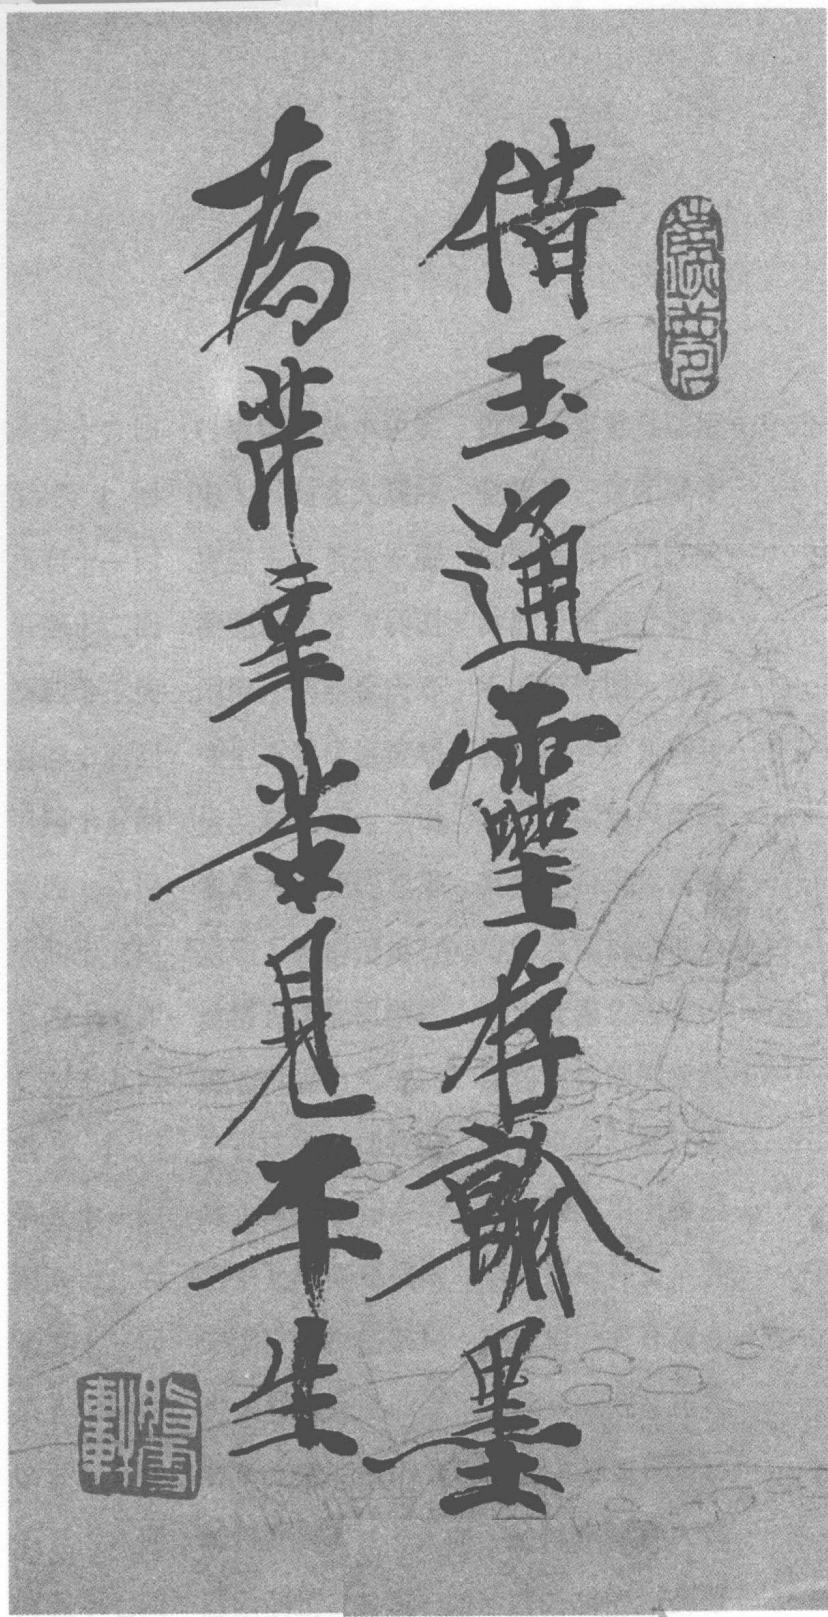 借玉通靈存翰墨
為芹辛苦見平生